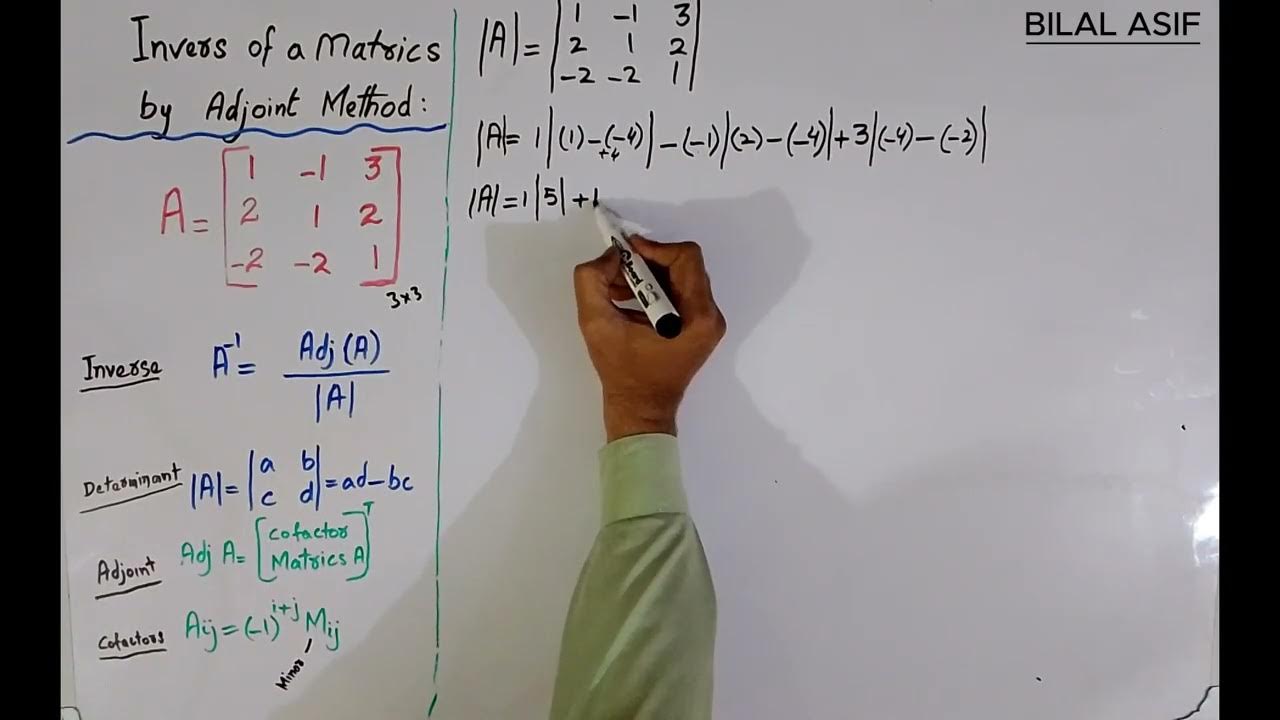 BILAL ASIF
Invers of a Matrics
by Adjoint Method:
A = [1 -1 3
2 1 2
-2 -2 1] 3×3
Inverse A⁻¹ = Adj (A)
|A|
Determinant |A| = |a b
c d| = ad - bc
Adjoint Adj A = [cofactor
Matrics A]ᵀ
Cofactors Aij = (-1)ⁱ⁺ʲ Mij
Minor
|A| = |1 -1 3
2 1 2
-2 -2 1|
|A| = 1 |(1) - (-4)| - (-1) |(2) - (-4)| + 3 |(-4) - (-2)|
+4
|A| = 1 |5| + 1